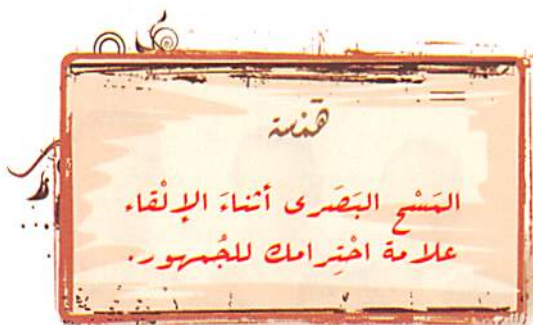 همسة
المَسْح البَصَرى أثناءَ الإلْقاء
علامة احْتِرامك للجُمهور.